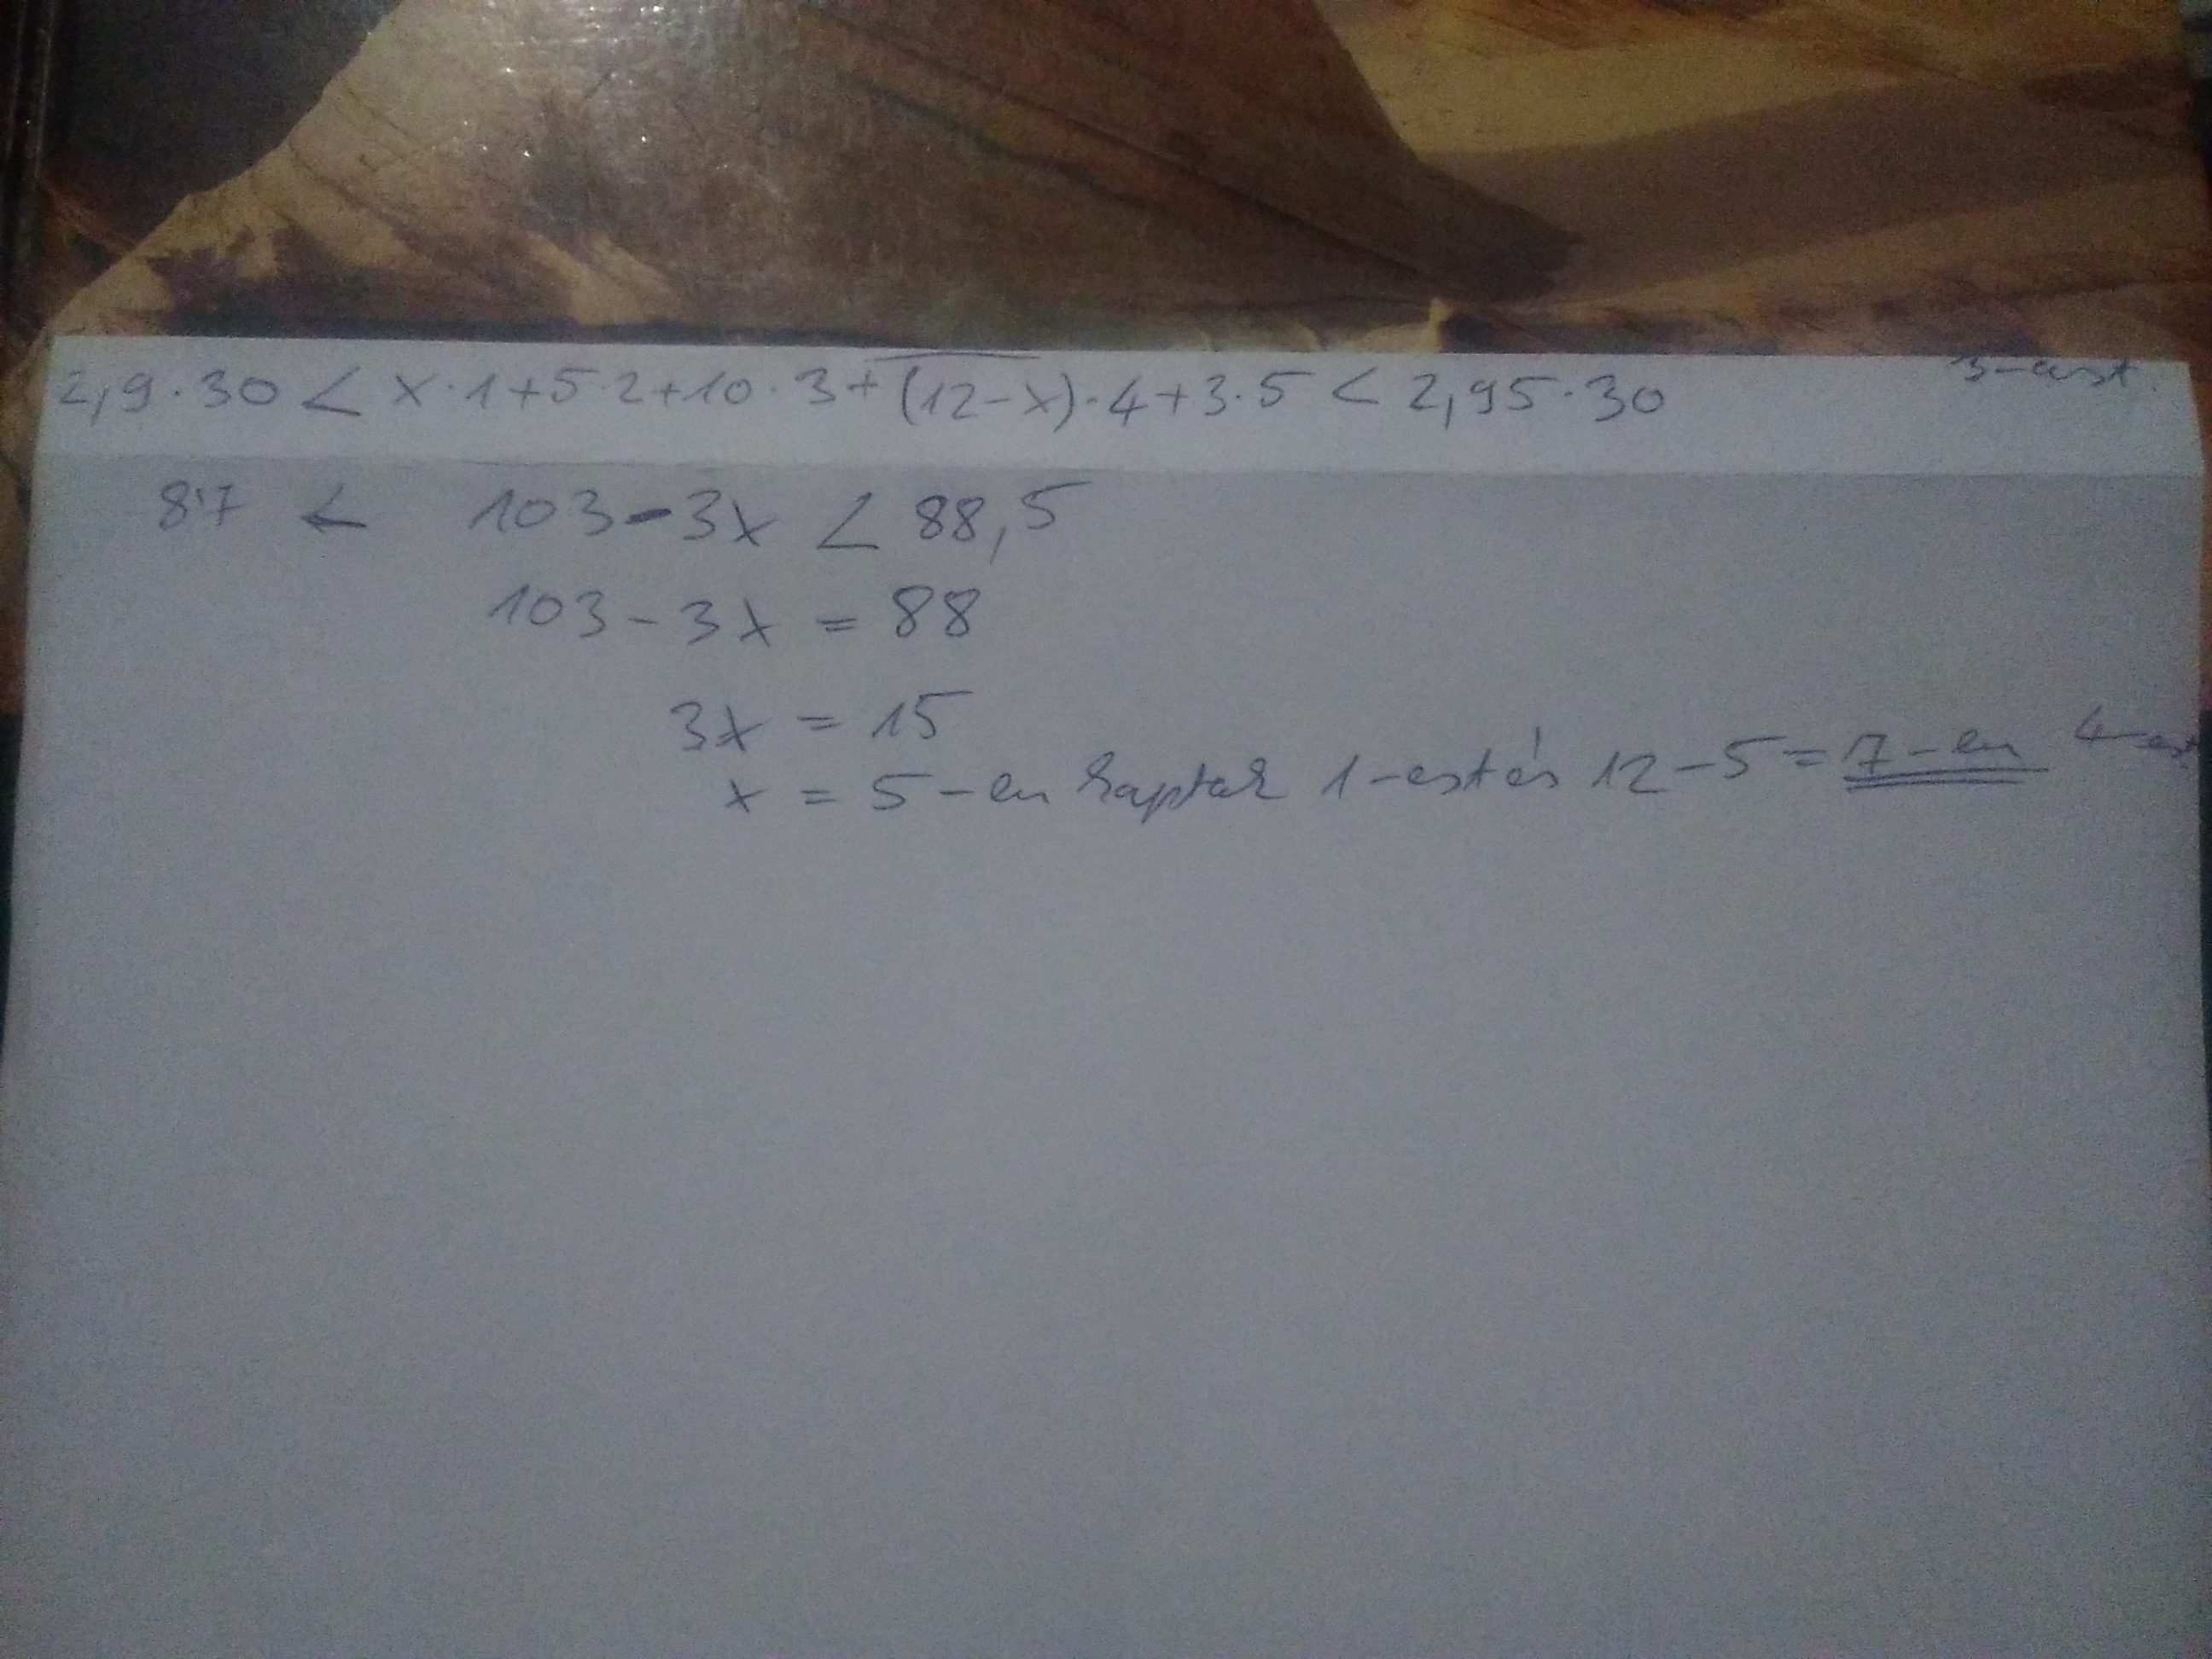 2,9·30 < x·1+5·2+10·3+(12-x)·4+3·5 < 2,95·30
87 < 103-3x < 88,5
103-3x = 88
3x = 15
x = 5-en kaptak 1-est és 12-5=7-en 4-est